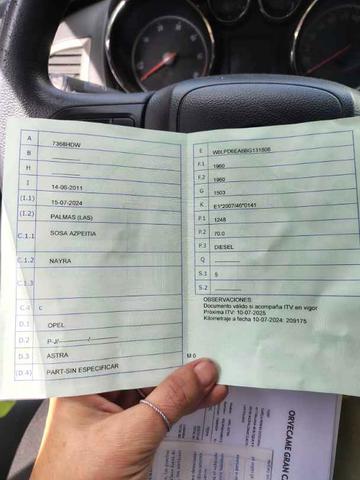 A 7368HDW
B
H ---------------
I 14-06-2011
(I.1) 15-07-2024
(I.2) PALMAS (LAS)
C.1.1 SOSA AZPEITIA
C.1.2 NAYRA
C.1.3
C.4 C
D.1 OPEL
D.2 P-J/----------/----------
D.3 ASTRA
(D.4) PART-SIN ESPECIFICAR
E W0LPD6EA6BG131806
F.1 1960
F.2 1960
G 1503
K E1*2007/46*0141
P.1 1248
P.2 70.0
P.3 DIESEL
Q ---------------
S.1 5
S.2 ---------------
OBSERVACIONES:
Documento válido si acompaña ITV en vigor
Próxima ITV: 10-07-2025
Kilometraje a fecha 10-07-2024: 209175
M 0
ORVECAME GRAN C